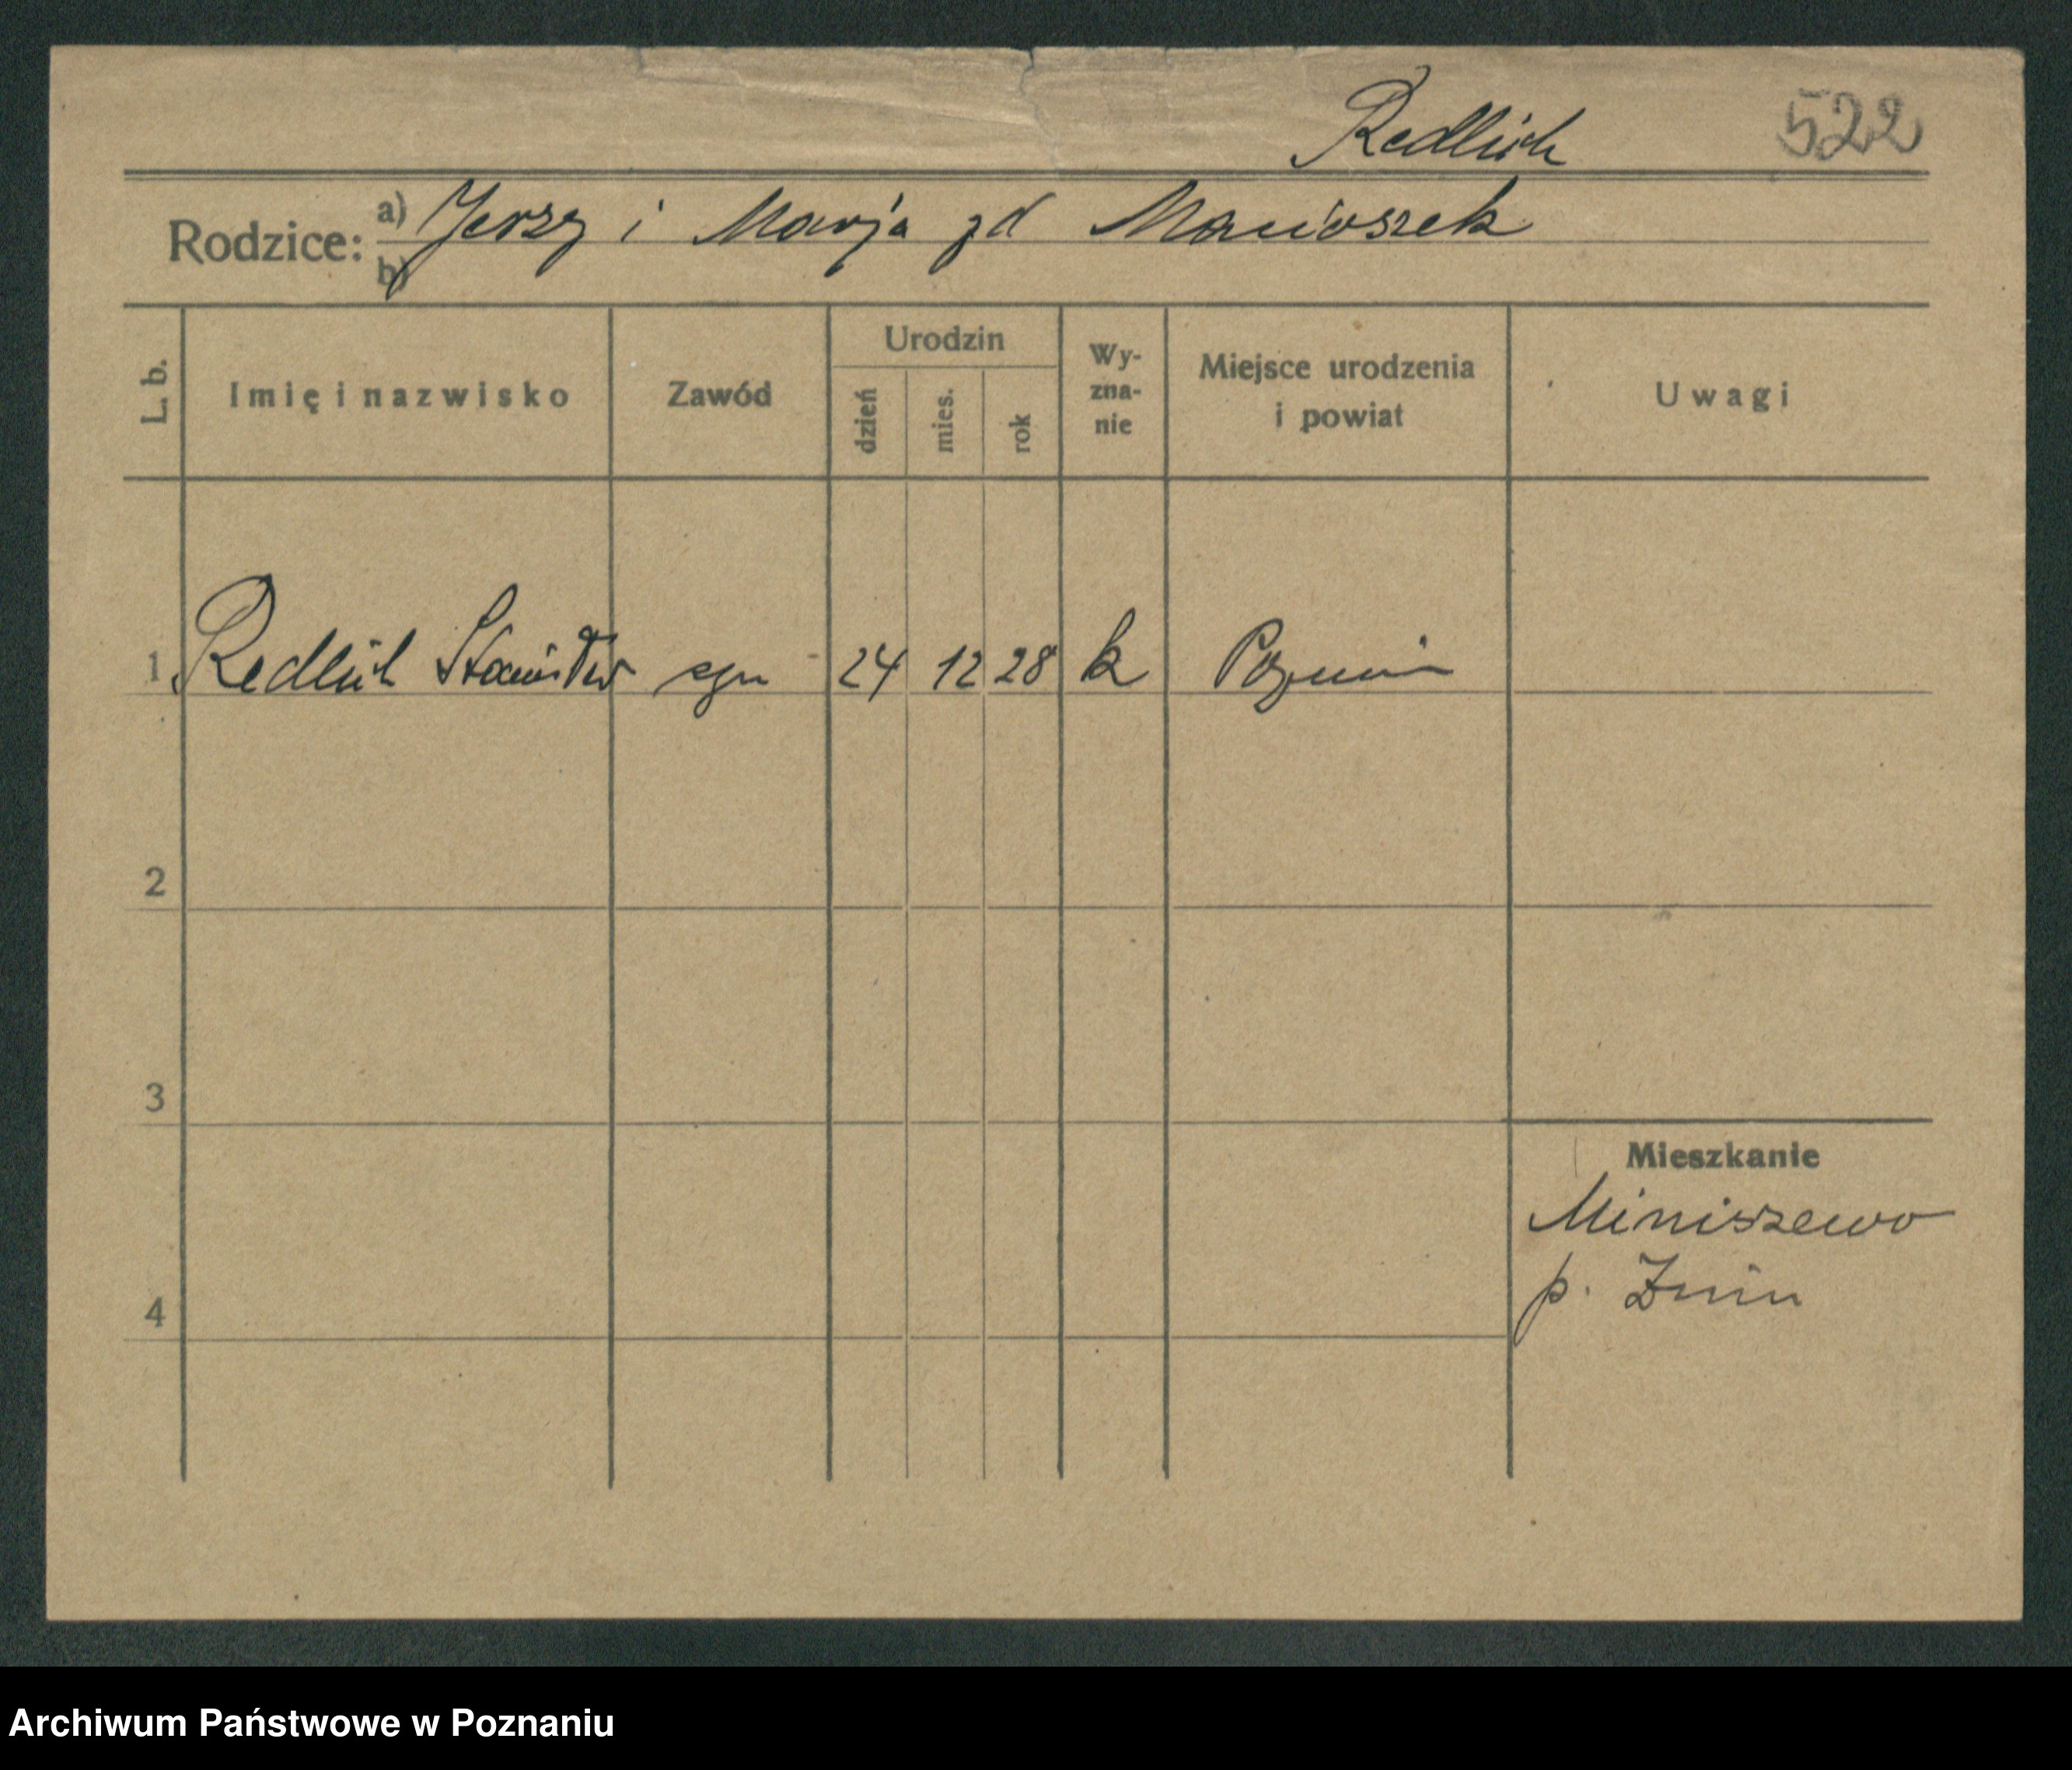 Redlich 522
Rodzice: a) Jerzy i Marja zd Manioszek
b)
L. b. Imię i nazwisko Zawód Urodzin dzień mies. rok Wy-zna-nie Miejsce urodzenia i powiat Uwagi
1 Redlich Stanisław syn 24 12 28 k Poznań
2
3
Mieszkanie
Miniszewo
p. Żnin
4
Archiwum Państwowe w Poznaniu